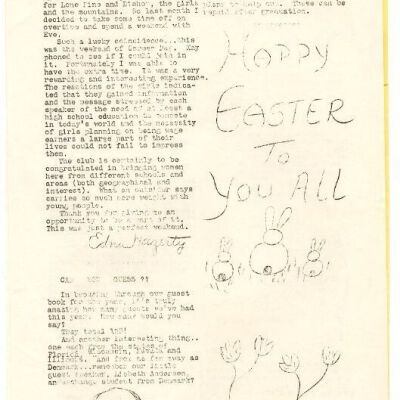 for Lone Pine and Bishop, the girls plans to help out. These can be
and the mountains. So last month I
decided to take some time off on
overtime and spend a weekend with
Eve.
Such a lucky coincidence...this
was the weekend of Career Day. Kay
phoned to see if I could join in
it. Fortunately I was able to
have the extra time. It was a very
rewarding and interesting experience.
The reactions of the girls indica-
ted that they gained information
and the message stressed by each
speaker of the need of at least a
high school education to compete
in today's world and the necessity
of girls planning on being wage
earners a large part of their
lives could not fail to impress
them.
The club is certainly to be
congratulated in bringing women
here from different schools and
areas (both geographical and
interest). What an outsider says
carries so much more weight with
young people.
Thank you for giving me an
opportunity to be a part of it.
This was just a perfect weekend.
Edna Hagerty
HAPPY
EASTER
To
YOU ALL
CAN YOU GUESS ??
In browsing through our guest
book for the year, it's truly
amazing how many guests we've had
this year. How many would you
say?
They total
And another interesting thing..
one each from the states of
Florida, Wisconsin, Nevada and
Illinois, and from as far away as
Denmark...remember our little
guest speaker, Lisbeth Andersen,
an exchange student from Denmark?